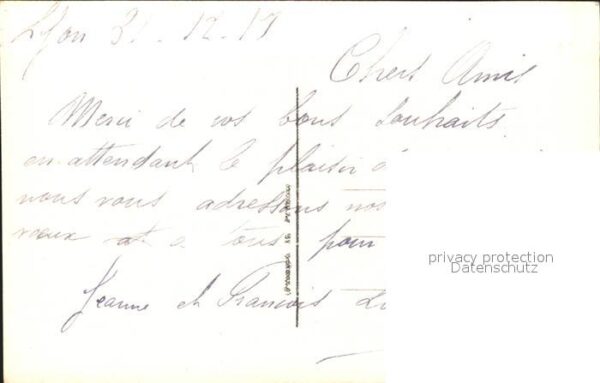 Lyon 31-12-17
Chers Amis
Merci de vos bons souhaits
en attendant le plaisir
nous vous adressons nos
vœux et à tous pour
Jeanne et François
privacy protection
Datenschutz